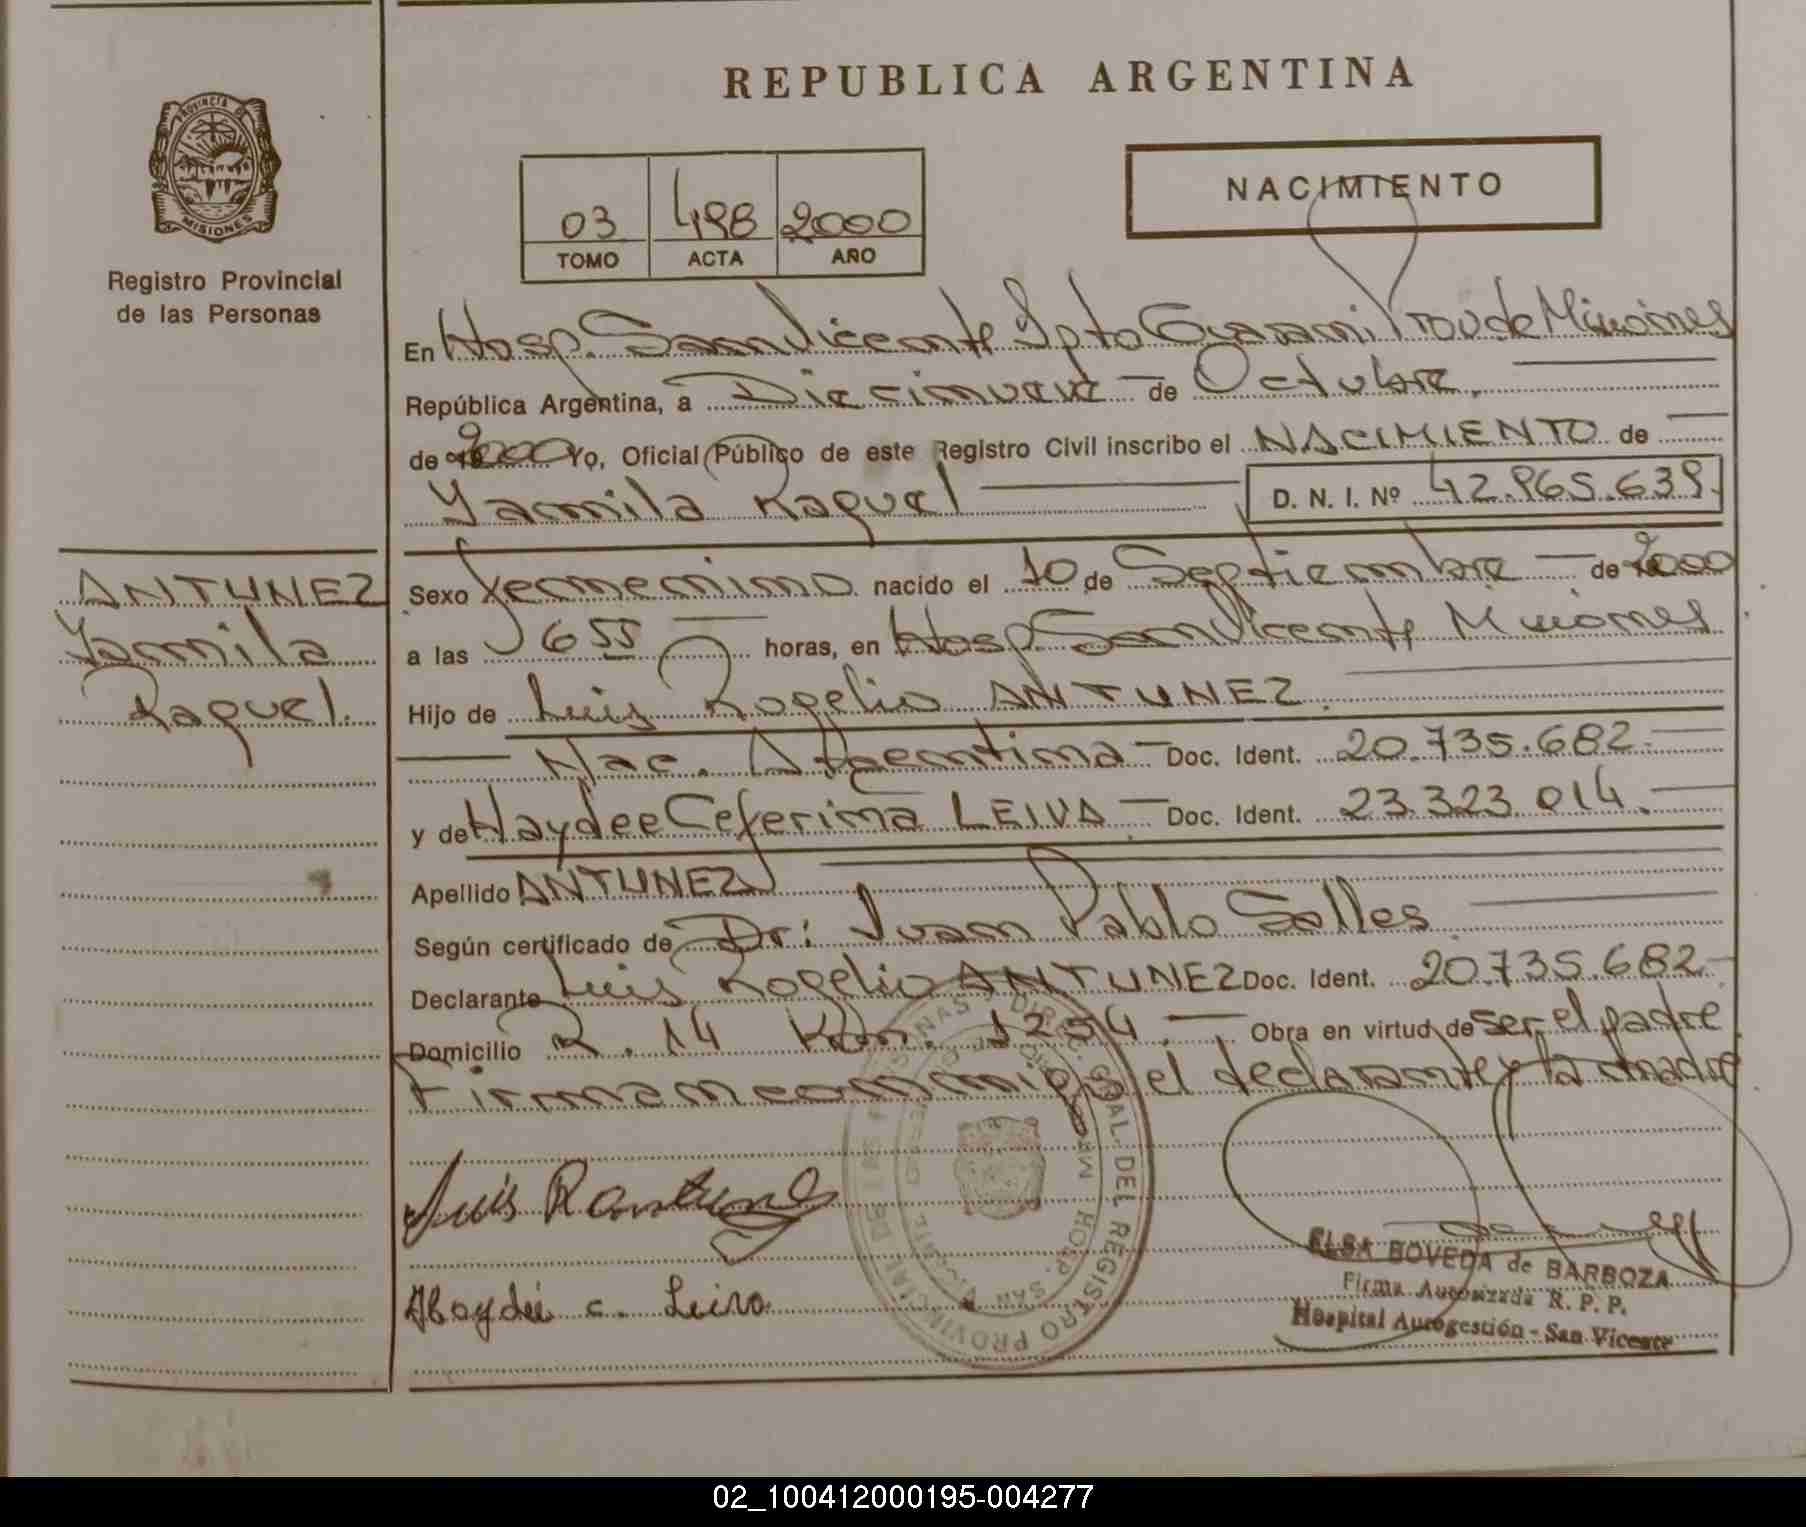 REPUBLICA ARGENTINA
PROVINCIA DE
MISIONES
Registro Provincial
de las Personas
NACIMIENTO
03 498 2000
TOMO ACTA AÑO
En Hosp. San Vicente Dpto Guarani Prov de Misiones
República Argentina, a Diecinueve de Octubre
de 2000 Yo, Oficial Público de este Registro Civil inscribo el NACIMIENTO de
Yamila Raquel D. N. I. Nº 42.965.639.
ANTUNEZ
Yamila
Raquel.
Sexo femenino nacido el 10 de Septiembre de 2000
a las 6 55 horas, en Hosp San Vicente Misiones
Hijo de Luis Rogelio ANTUNEZ
Nac. Argentina Doc. Ident. 20.735.682
y de Haydee Ceferina LEIVA Doc. Ident. 23.323.014.
Apellido ANTUNEZ
Según certificado de Dr: Juan Pablo Salles
Declarante Luis Rogelio ANTUNEZ Doc. Ident. 20.735.682
Domicilio R. 14 Km. 1254. Obra en virtud de ser el padre
Firman conmigo el declarante y la madre
Luis R antunez
Haydeé c. Leiva
REGISTRO PROVINCIAL DE LAS PERSONAS DIREC. GRAL. DEL
HOSP. SAN VICENTE
ELSA BOVEDA de BARBOZA
Firma Autorizada R. P. P.
Hospital Autogestión - San Vicente
02_100412000195-004277